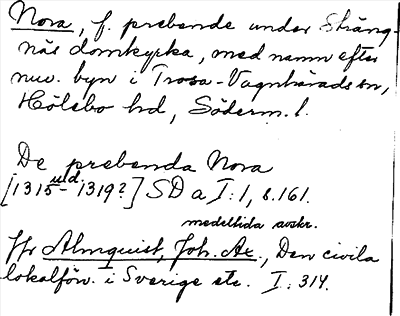 Nora, f. prebende under Sträng-
näs domkyrka, med namn efter
nuv. byn i Trosa-Vagnhärads sn,
Hölebo hd, Söderm. l.
De prebenda Nora
[1315 u/d - 1319?] SD a I:1, s. 161.
medeltida avskr.
Jfr Almquist, Joh. Ax., Den civila
lokalförv. i Sverige etc. I: 314.